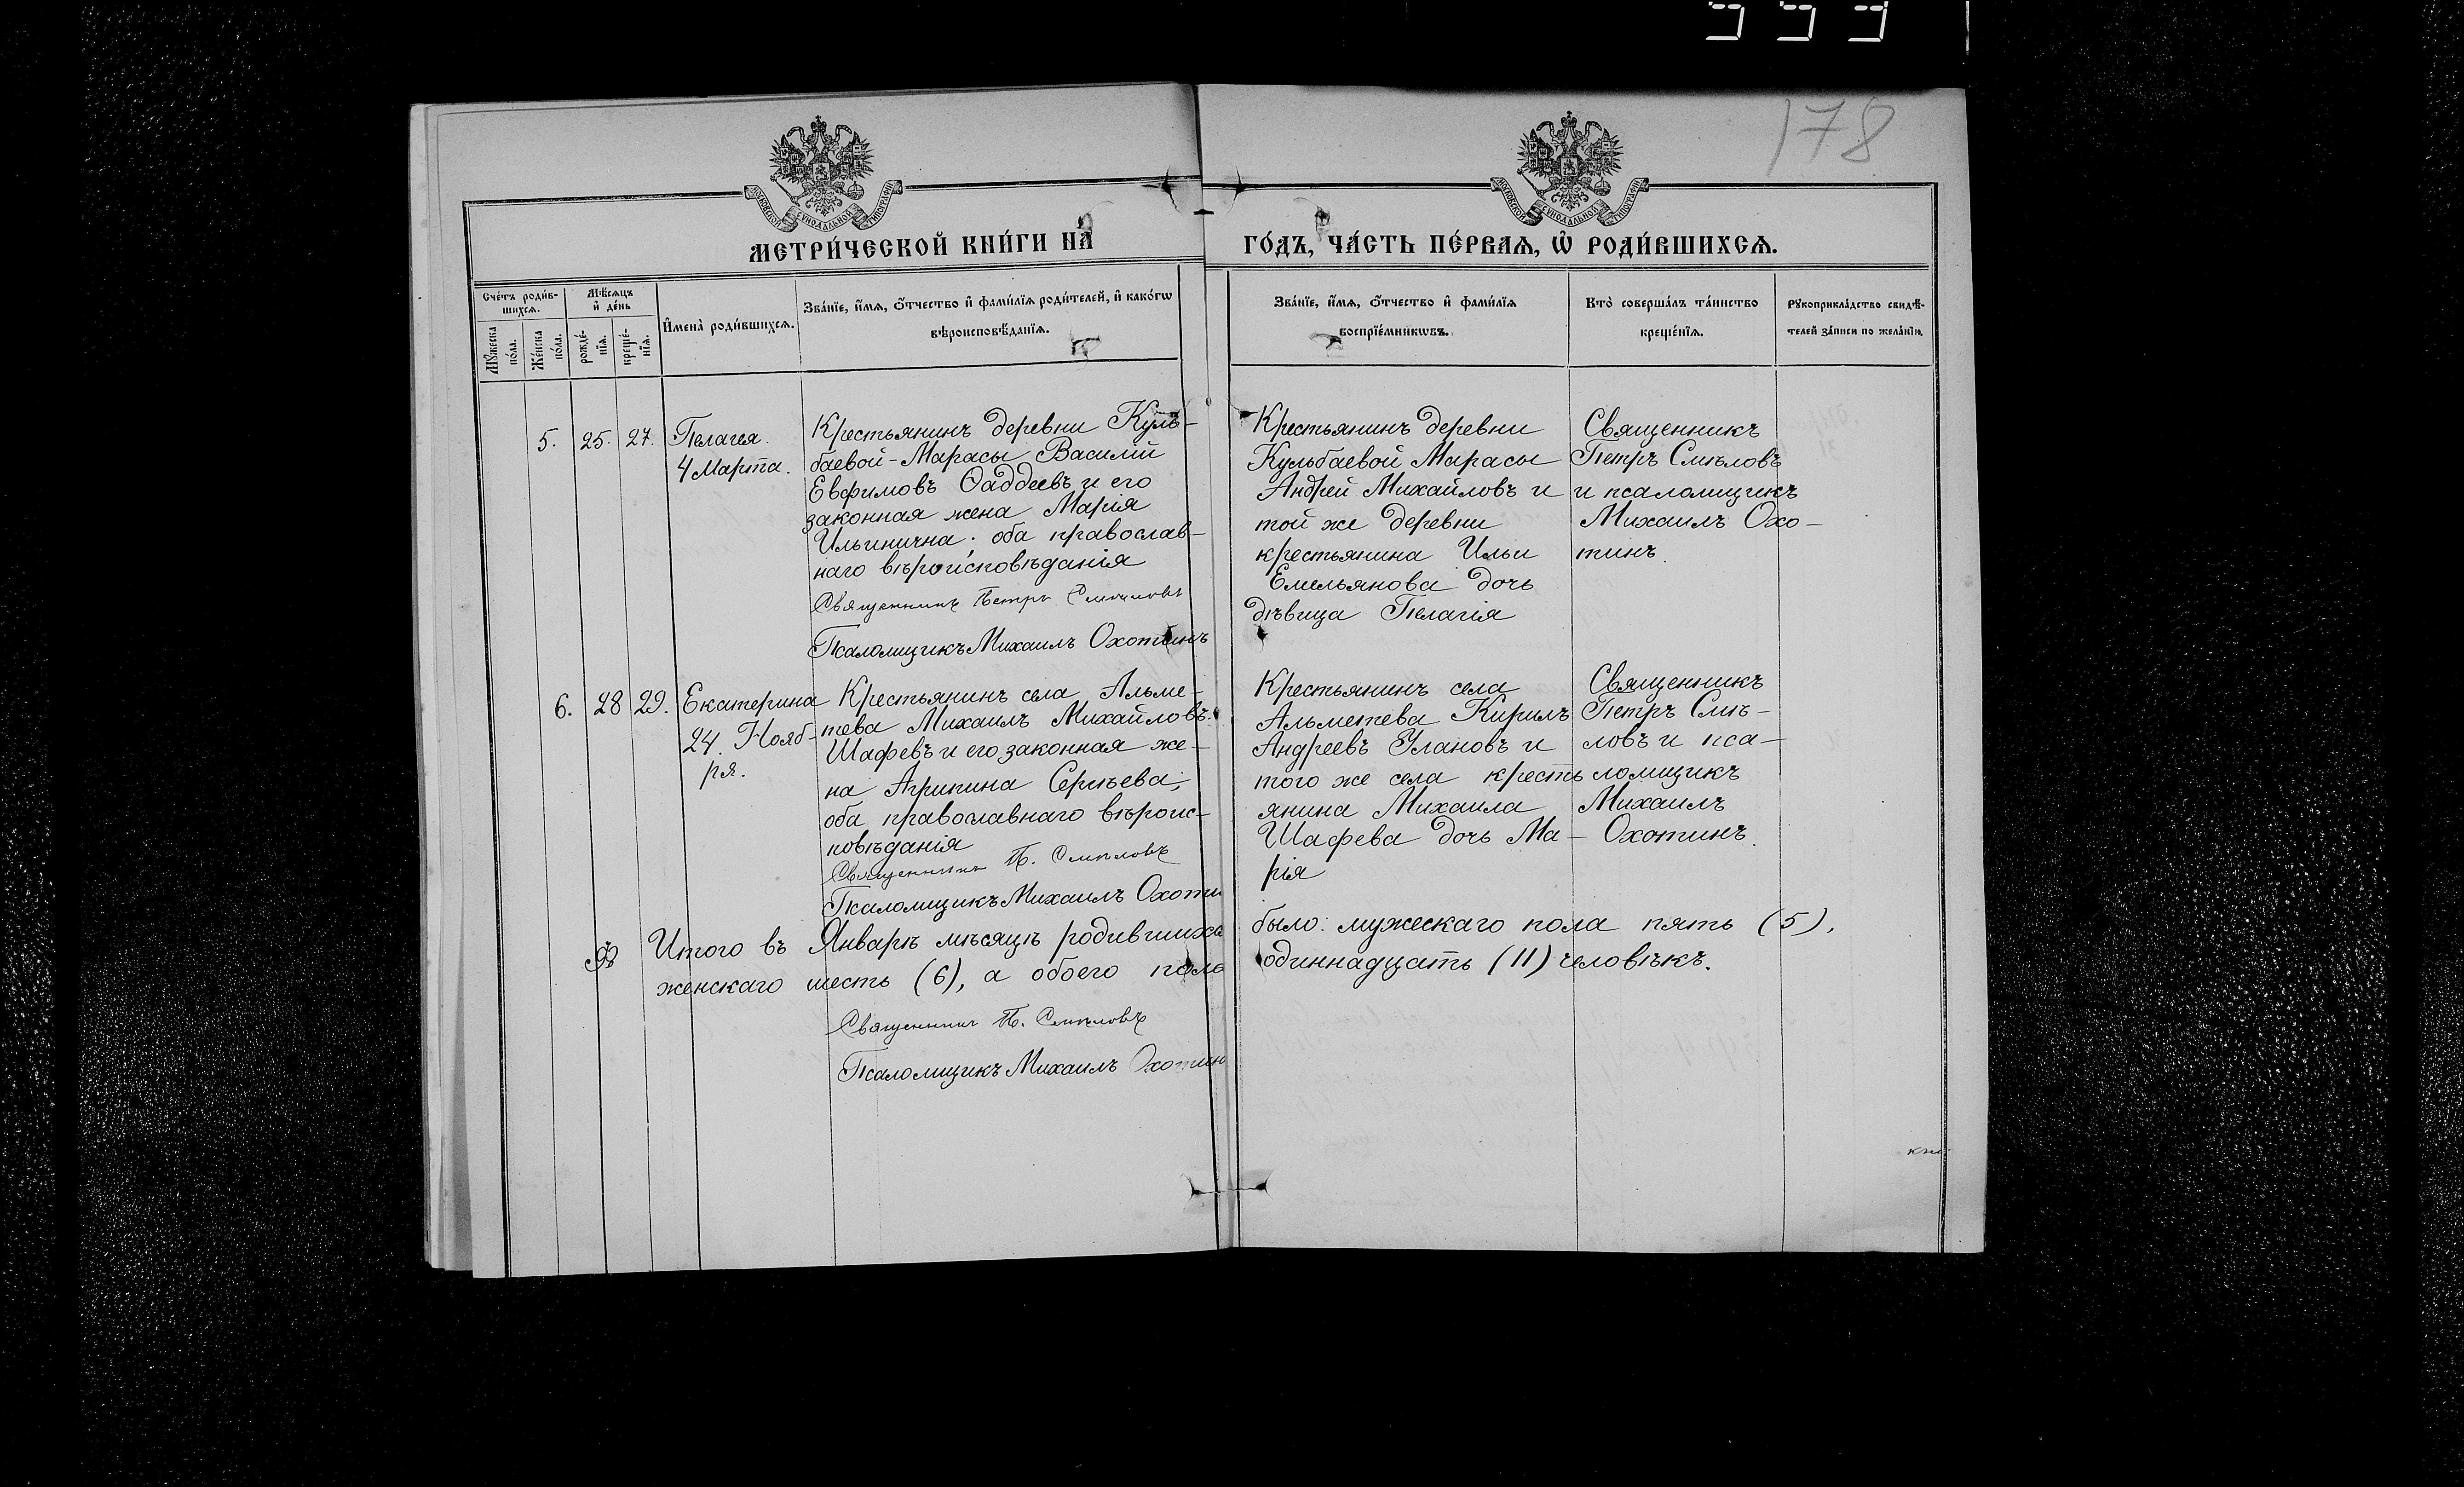 178
МОСКОВСКОЙ СѴНОДАЛЬНОЙ ТИПОГРАФІИ
МОСКОВСКОЙ СѴНОДАЛЬНОЙ ТИПОГРАФІИ
МЕТРИ́ЧЕСКОЙ КНИ́ГИ НА̀
ГО́ДЪ, ЧА́СТЬ ПЕ́РВАѦ, Ѡ҆ РОДИ́ВШИХСѦ.
Сче́тъ роди́в-
шихсѧ.
Мꙋ́жеска
по́ла.
Же́нска
по́ла.
Мѣ́сѧцъ
и҆ де́нь
рожде́-
нїѧ.
креще́-
нїѧ.
И҆мена̀ роди́вшихсѧ.
Зва́нїе, и҆́мѧ, ѻ҆́тчество и҆ фами́лїѧ роди́телей, и҆ како́гѡ
вѣроисповѣ́данїѧ.
Зва́нїе, и҆́мѧ, ѻ҆́тчество и҆ фами́лїѧ
воспрїе́мникѡвъ.
Кто̀ соверша́лъ та́инство
креще́нїѧ.
Рꙋкоприкла́дство свидѣ́-
телей за́писи по жела́нїю.
5. 25. 27.
Пелагея.
4 Марта.
Крестьянинъ деревни Куль-
баевой-Марасы Василій
Евфимовъ Ѳаддеевъ и его
законная жена Марія
Ильинична; оба православ-
наго вѣроисповѣданія
Священникъ Петръ Смѣловъ
Псаломщикъ Михаилъ Охотинъ
Крестьянинъ деревни
Кульбаевой Марасы
Андрей Михайловъ и
той же деревни
крестьянина Ильи
Емельянова дочь
дѣвица Пелагія
Священникъ
Петръ Смѣловъ
и псаломщикъ
Михаилъ Охо-
тинъ.
6. 28 29.
Екатерина
24. Нояб-
ря.
Крестьянинъ села Альме-
тева Михаилъ Михайловъ
Шафевъ и его законная же-
на Агрипина Сергѣева;
оба православнаго вѣроис-
повѣданія
Священникъ П. Смѣловъ
Псаломщикъ Михаилъ Охоти
Крестьянинъ села
Альметева Кирилъ
Андреевъ Улановъ и
того же села кресть
янина Михаила
Шафева дочь Ма-
рія
Священникъ
Петръ Смѣ-
ловъ и пса-
ломщикъ
Михаилъ
Охотинъ.
Итого въ Январѣ мѣсяцѣ родившихся было: мужескаго пола пять (5),
женскаго шесть (6), а обоего пола одиннадцать (11) человѣкъ.
Священникъ П. Смѣловъ
Псаломщикъ Михаилъ Охотин